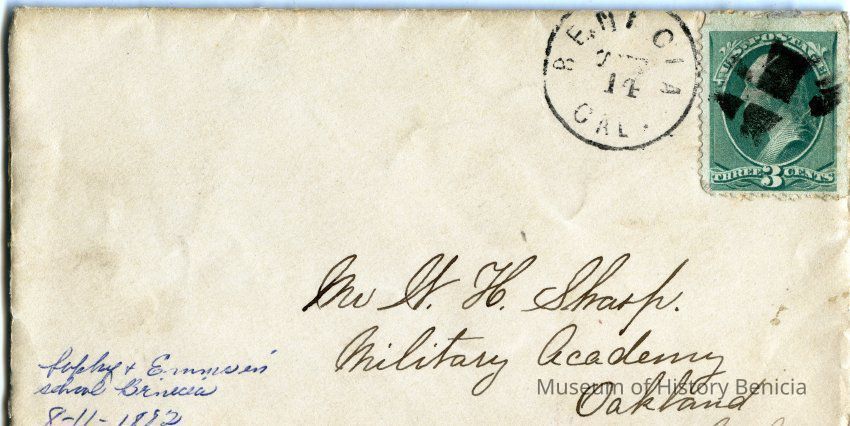 BENICIA
14
CAL.
U.S. POSTAGE
THREE 3 CENTS
Mr W. H. Sharp.
Military Academy
Oakland
Sophy + Emma in
school Benecia
8-11-1882
Museum of History Benicia